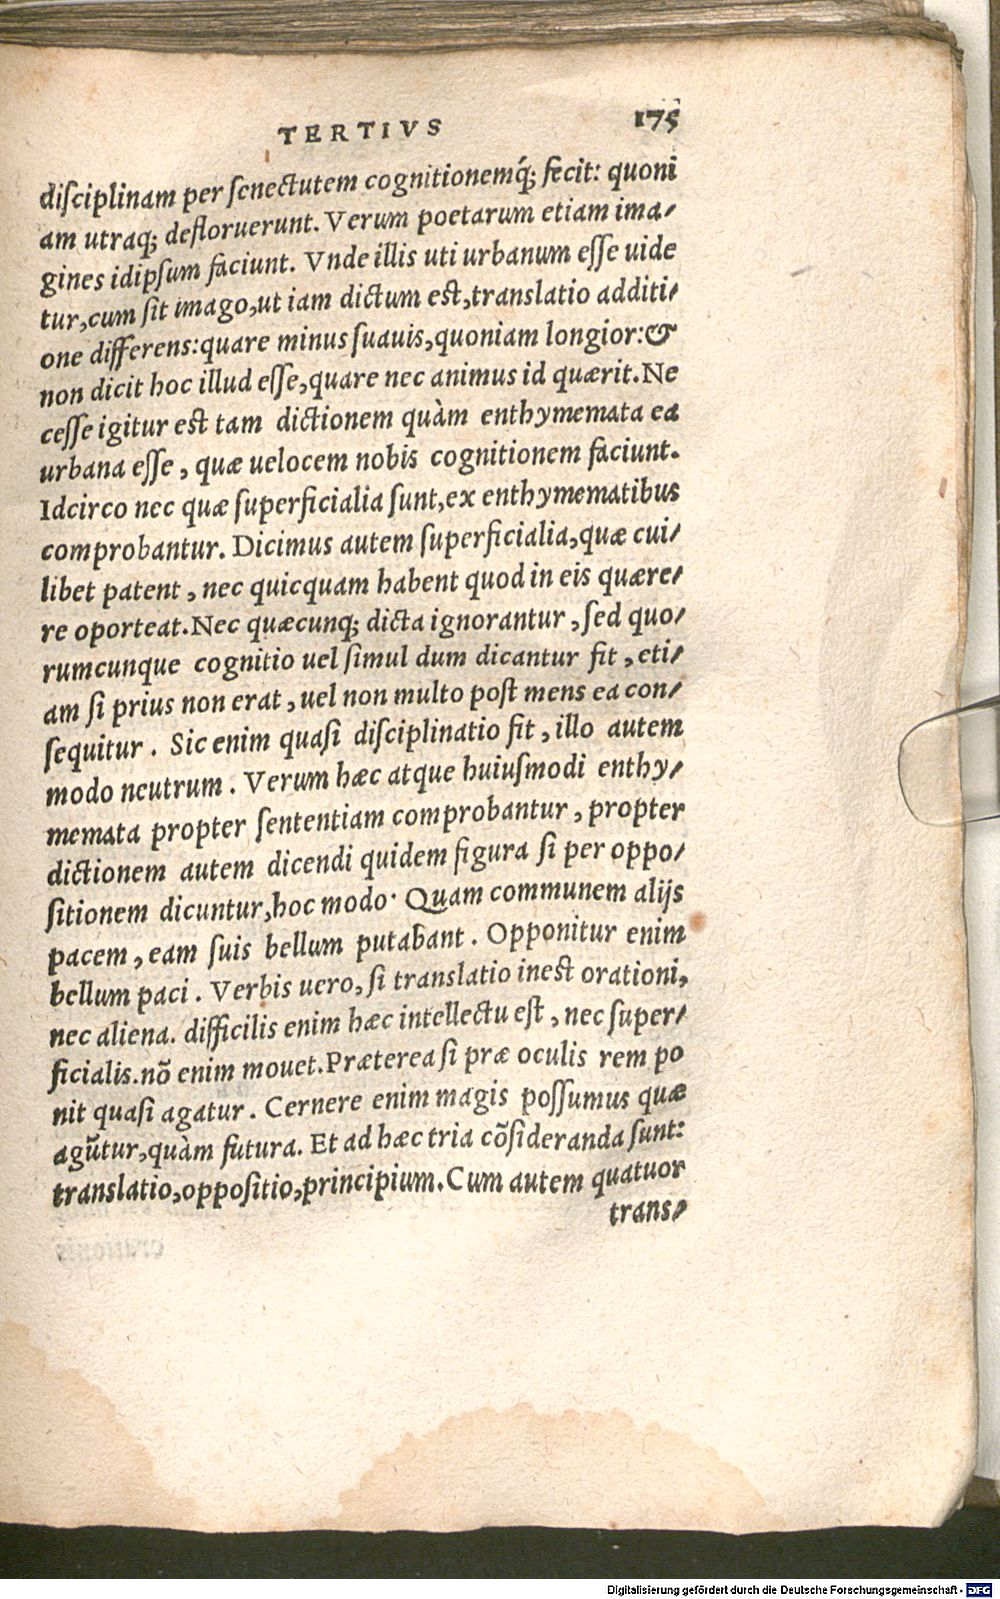 TERTIVS 175
disciplinam per senectutem cognitionemq́; fecit: quoni
am utraq; defloruerunt. Verum poetarum etiam ima/
gines idipsum faciunt. Vnde illis uti urbanum esse uide
tur,cum sit imago,ut iam dictum est,translatio additi/
one differens:quare minus suauis,quoniam longior:&
non dicit hoc illud esse,quare nec animus id quærit.Ne
cesse igitur est tam dictionem quàm enthymemata ea
urbana esse, quæ uelocem nobis cognitionem faciunt.
Idcirco nec quæ superficialia sunt,ex enthymematibus
comprobantur. Dicimus autem superficialia,quæ cui/
libet patent, nec quicquam habent quod in eis quære/
re oporteat.Nec quæcunq; dicta ignorantur, sed quo/
rumcunque cognitio uel simul dum dicantur fit, eti/
am si prius non erat, uel non multo post mens ea con/
sequitur. Sic enim quasi disciplinatio fit, illo autem
modo neutrum. Verum hæc atque huiusmodi enthy/
memata propter sententiam comprobantur, propter
dictionem autem dicendi quidem figura si per oppo/
sitionem dicuntur,hoc modo· Quam communem alijs
pacem, eam suis bellum putabant. Opponitur enim
bellum paci. Verbis uero, si translatio inest orationi,
nec aliena. difficilis enim hæc intellectu est, nec super/
ficialis.nõ enim mouet.Præterea si præ oculis rem po
nit quasi agatur. Cernere enim magis possumus quæ
agũtur,quàm futura. Et ad hæc tria cõsideranda sunt:
translatio,oppositio,principium.Cum autem quatuor
trans/
Digitalisierung gefördert durch die Deutsche Forschungsgemeinschaft - DFG